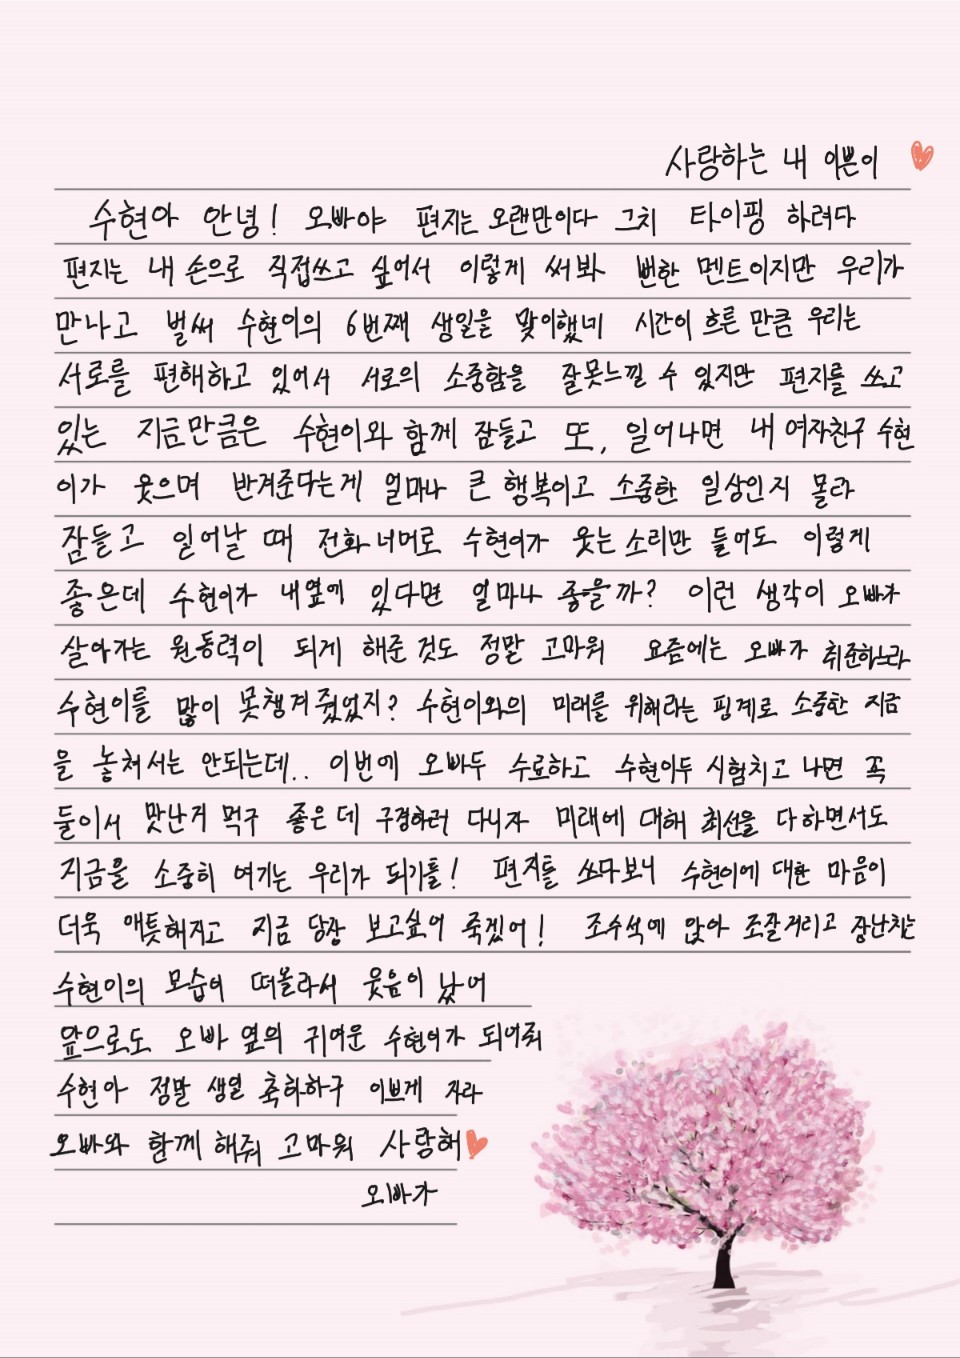 사랑하는 내 이쁜이
수현아 안녕! 오빠야 편지는 오랜만이다 그치 타이핑 하려다
편지는 내 손으로 직접쓰고 싶어서 이렇게 써봐 뻔한 멘트이지만 우리가
만나고 벌써 수현이의 6번째 생일을 맞이했네 시간이 흐른 만큼 우리는
서로를 편해하고 있어서 서로의 소중함을 잘못느낄 수 있지만 편지를 쓰고
있는 지금만큼은 수현이와 함께 잠들고 또, 일어나면 내 여자친구 수현
이가 웃으며 반겨준다는게 얼마나 큰 행복이고 소중한 일상인지 몰라
잠들고 일어날 때 전화 너머로 수현이가 웃는 소리만 들어도 이렇게
좋은데 수현이가 내옆에 있다면 얼마나 좋을까? 이런 생각이 오빠가
살아가는 원동력이 되게 해준 것도 정말 고마워 요즘에는 오빠가 취준하느라
수현이를 많이 못챙겨줬었지? 수현이와의 미래를 위해라는 핑계로 소중한 지금
을 놓쳐서는 안되는데.. 이번에 오빠두 수료하고 수현이두 시험치고 나면 꼭
둘이서 맛난거 먹구 좋은데 구경하러 다니자 미래에 대해 최선을 다하면서도
지금을 소중히 여기는 우리가 되기를! 편지를 쓰다보니 수현이에 대한 마음이
더욱 애틋해지고 지금 당장 보고싶어 죽겠어! 조수석에 앉아 조잘거리고 장난치는
수현이의 모습이 떠올라서 웃음이 났어
앞으로도 오빠 옆의 귀여운 수현이가 되어줘
수현아 정말 생일 축하하구 이쁘게 자라
오빠와 함께 해줘 고마워 사랑해
오빠가